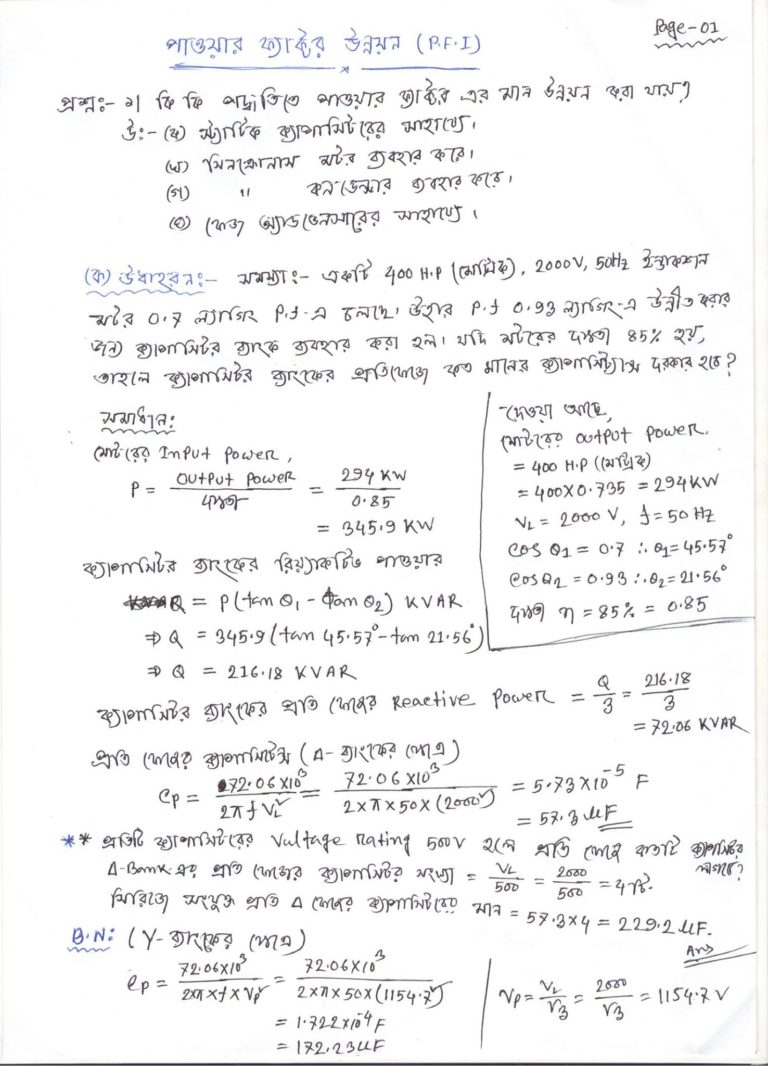 Page-01
পাওয়ার ফ্যাক্টর উন্নয়ন (P.F.I)
প্রশ্ন:- ১। কি কি পদ্ধতিতে পাওয়ার ফ্যাক্টর এর মান উন্নয়ন করা যায়?
উ:- (ক) স্ট্যাটিক ক্যাপাসিটরের সাহায্যে।
(খ) সিনক্রোনাস মটর ব্যবহার করে।
(গ) " কনডেন্সার ব্যবহার করে।
(ঘ) ফেজ অ্যাডভেনসারের সাহায্যে।
(ক) উদাহরন:- সমস্যা:- একটি 400 H.P (মেট্রিক), 2000V, 50Hz ইন্ডাকশন
মটর 0.7 ল্যাগিং P.f-এ চলছে। উহার P.f 0.93 ল্যাগিং-এ উন্নীত করার
জন্য ক্যাপাসিটর ব্যাংক ব্যবহার করা হল। যদি মটরের দক্ষতা 85% হয়,
তাহলে ক্যাপাসিটর ব্যাংকের প্রতিফেজে কত মানের ক্যাপাসিট্যান্স দরকার হবে?
সমাধান:
মোটরের Input Power,
P = Output Power / দক্ষতা = 294 KW / 0.85
= 345.9 KW
দেওয়া আছে,
মোটরের output power.
= 400 H.P (মেট্রিক)
= 400X0.735 = 294KW
VL = 2000 V, f = 50 HZ
Cos θ1 = 0.7 ∴ θ1 = 45.57°
Cos θ2 = 0.93 ∴ θ2 = 21.56°
দক্ষতা η = 85% = 0.85
ক্যাপাসিটর ব্যাংকের রিয়্যাকটিভ পাওয়ার
Q = P(tan θ1 - tan θ2) KVAR
⇒ Q = 345.9 (tan 45.57° - tan 21.56°)
⇒ Q = 216.18 KVAR
ক্যাপাসিটর ব্যাংকের প্রতি ফেজের Reactive Power = Q/3 = 216.18/3
= 72.06 KVAR
প্রতি ফেজের ক্যাপাসিটেন্স (Δ- ব্যাংকের ক্ষেত্রে)
Cp = 72.06 X10³ / 2π f VL² = 72.06 X10³ / 2×π×50×(2000²) = 5.73X10⁻⁵ F
= 57.3 μF
** প্রতিটি ক্যাপাসিটরের Voltage Rating 500V হলে প্রতি ফেজে কতটি ক্যাপাসিটর লাগবে?
Δ-Bank এর প্রতি ফেজের ক্যাপাসিটর সংখ্যা = VL/500 = 2000/500 = 4টি.
সিরিজে সংযুক্ত প্রতি Δ ফেজের ক্যাপাসিটরের মান = 57.3X4 = 229.2 μF.
Ans
B.N: (Y- ব্যাংকের ক্ষেত্রে)
Cp = 72.06X10³ / 2π×f×Vp² = 72.06X10³ / 2×π×50×(1154.7²)
= 1.722X10⁻⁴ F
= 172.23μF
Vp = VL/√3 = 2000/√3 = 1154.7 V